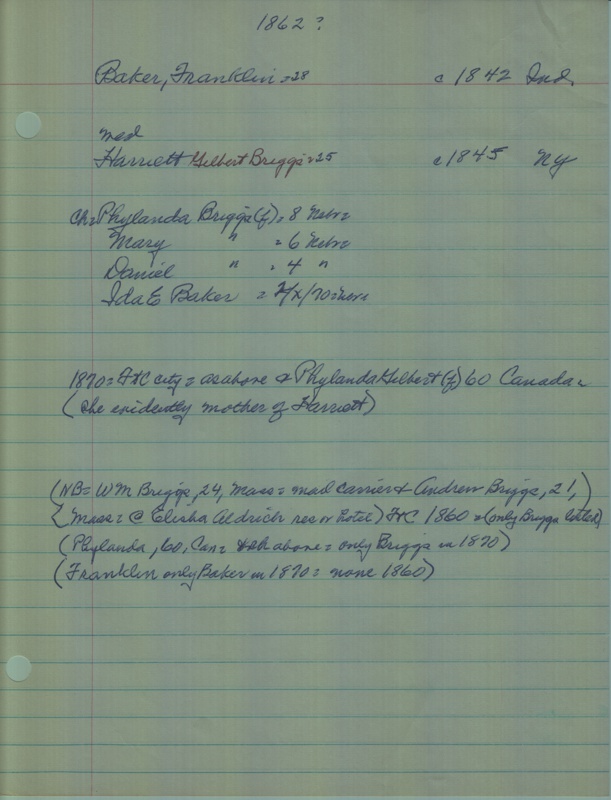 1862?
Baker, Franklin = 28 c 1842 Ind.
med
Harriett Gilbert Briggs = 25 c 1845 NY
Ch = Phylanda Briggs (f) = 8 Nebr =
Mary " = 6 Nebr =
Daniel " = 4 "
Ida E Baker = 2/x/70 = Nebr
1870 = city = as above & Phylanda Gilbert (f) 60 Canada =
(she evidently mother of Harriett)
(NB = Wm Briggs, 24, Mass = mail carrier & Andrew Briggs, 21,)
(Mass = @ Elisha Aldrich res or Hotel) 1860 = (only Briggs listed)
(Phylanda, 60, Can = above = only Briggs in 1870)
(Franklin only Baker in 1870 = none 1860)